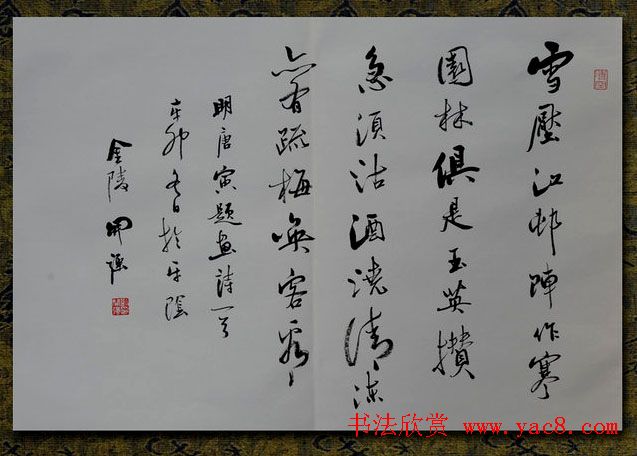 雪壓江邨陣作寒
園林俱是玉英攢
急須沽酒澆清凍
亦有疏梅喚客看
明唐寅題畫詩一首
辛卯冬日於平陰
金陵
书法欣赏 www.yac8.com